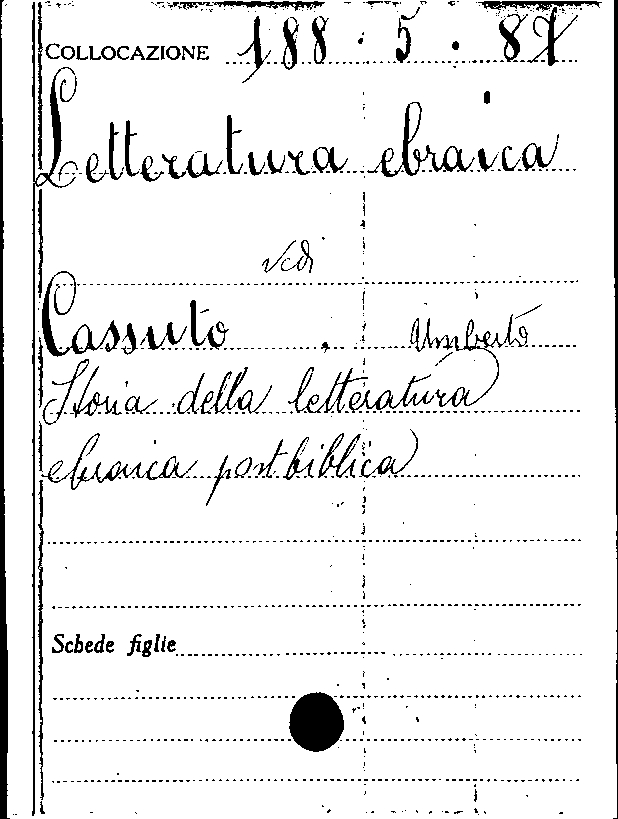 COLLOCAZIONE 188.5.87
Letteratura ebraica
vedi
Cassuto, Umberto
Storia della letteratura
ebraica postbiblica
Schede figlie